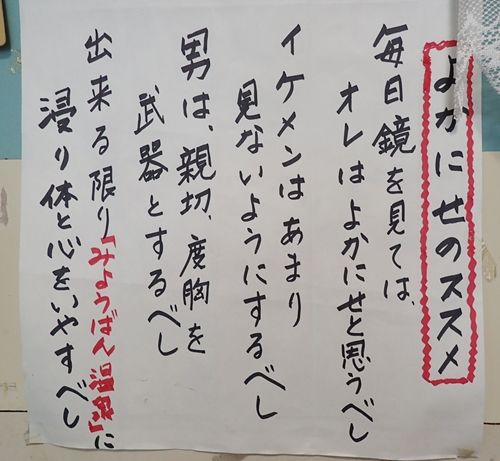 よかにせのススメ
毎日鏡を見ては、
オレはよかにせと思うべし
イケメンはあまり
見ないようにするべし
男は、親切、度胸を
武器とするべし
出来る限り「みょうばん温泉」に
浸り体と心をいやすべし